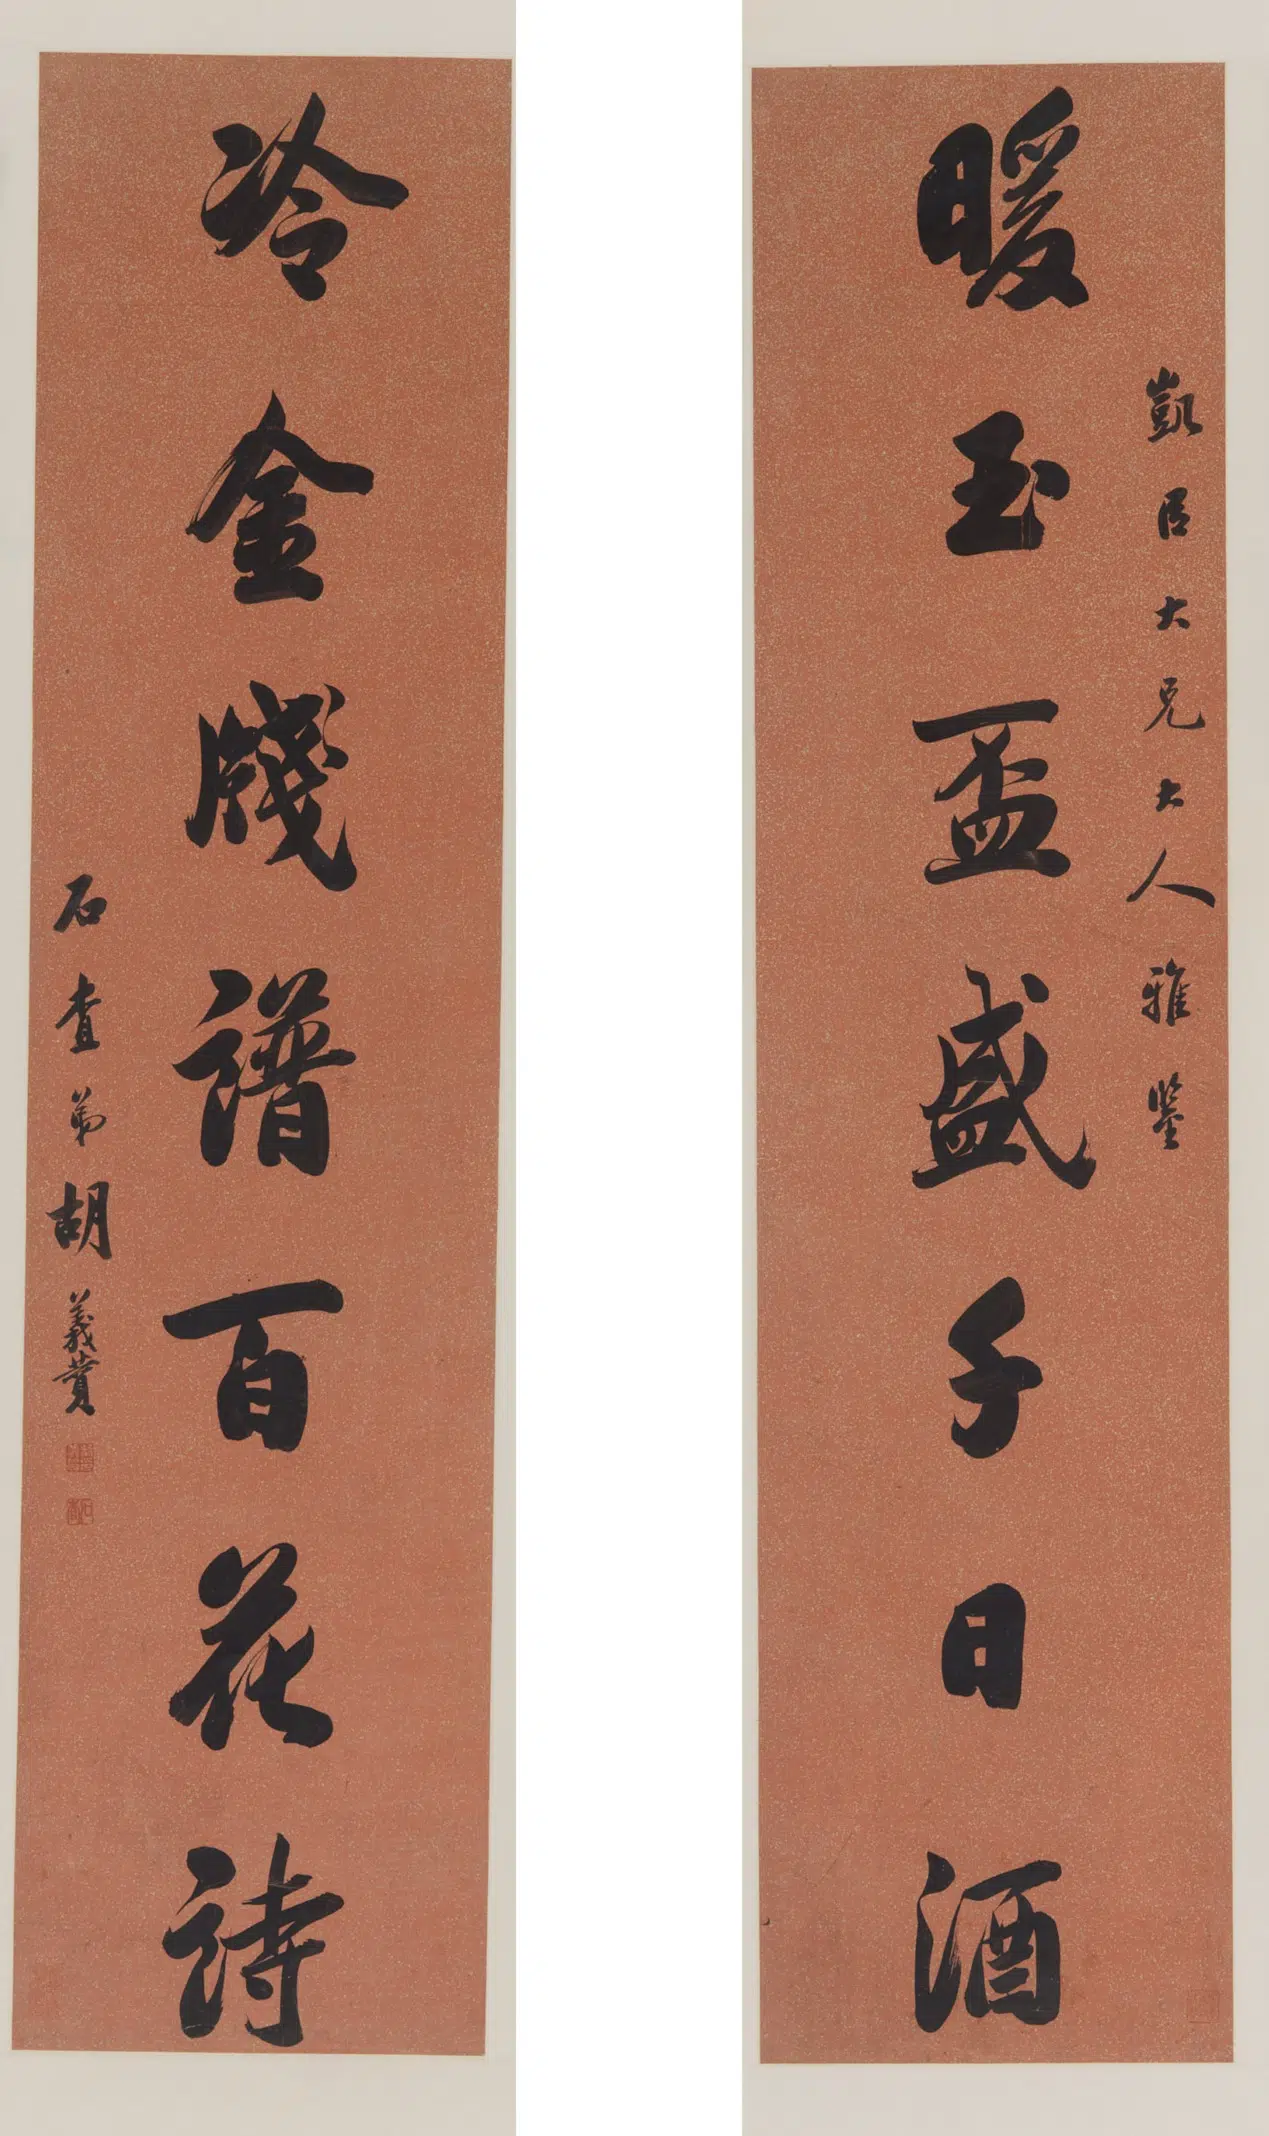 暖玉盃盛千日酒
凱臣大兄大人雅鑒
冷金牋譜百花詩
石查弟胡義贊